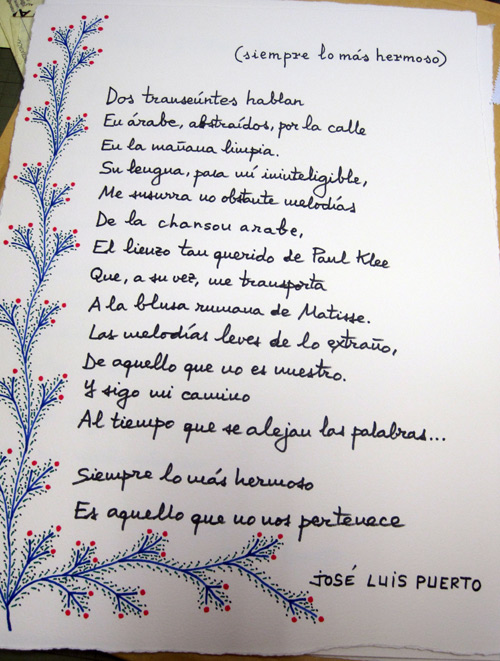 (siempre lo más hermoso)
Dos transeúntes hablan
En árabe, abstraídos, por la calle
En la mañana limpia.
Su lengua, para mí ininteligible,
Me susurra no obstante melodías
De la chanson arabe,
El lienzo tan querido de Paul Klee
Que, a su vez, me transporta
A la blusa rumana de Matisse.
Las melodías leves de lo extraño,
De aquello que no es nuestro.
Y sigo mi camino
Al tiempo que se alejan las palabras...
Siempre lo más hermoso
Es aquello que no nos pertenece
JOSÉ LUIS PUERTO